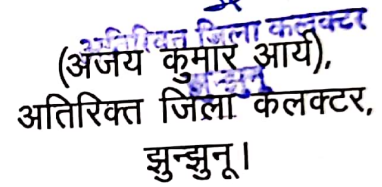 अतिरिक्त जिला कलक्टर
(अजय कुमार आर्य),
झुन्झुनू
अतिरिक्त जिला कलक्टर,
झुन्झुनू।